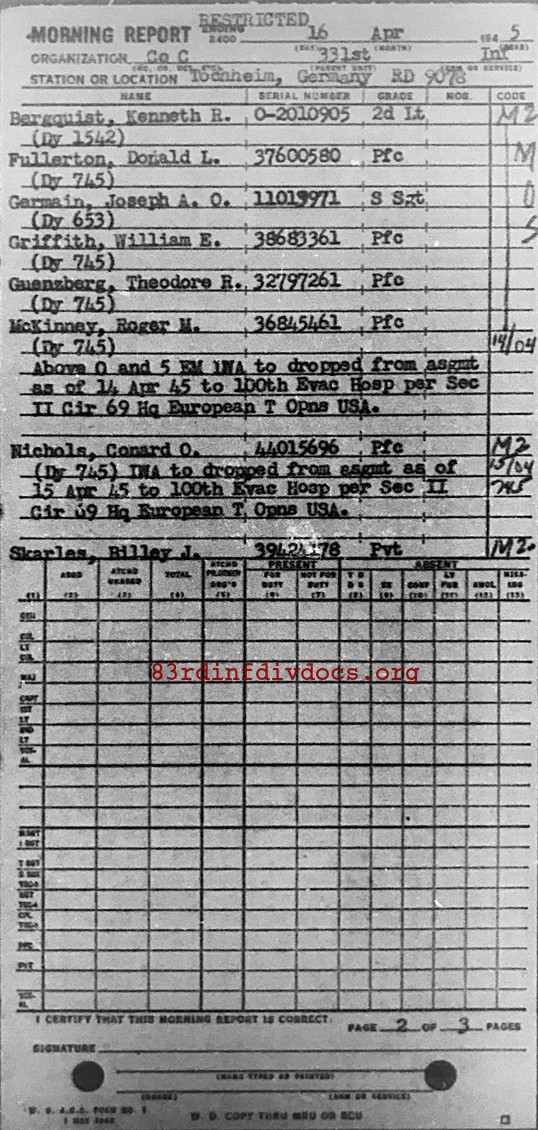 RESTRICTED
MORNING REPORT ENDING 2400 16 Apr 194 5
(DAY) (MONTH) (YEAR)
ORGANIZATION Co C 331st Inf
(PARENT UNIT) (ARM OR SERVICE)
STATION OR LOCATION Tochheim, Germany RD 9078
NAME SERIAL NUMBER GRADE MOS. CODE
Bergquist, Kenneth R. O-2010905 2d Lt M2
(Dy 1542)
Fullerton, Donald L. 37600580 Pfc M
(Dy 745)
Germain, Joseph A. O. 11019971 S Sgt O
(Dy 653)
Griffith, William E. 38683361 Pfc S
(Dy 745)
Guenzberg, Theodore R. 32797261 Pfc
(Dy 745)
McKinney, Roger M. 36845461 Pfc
(Dy 745) 14/04
Above O and 5 EM LWA to dropped from asgmt
as of 14 Apr 45 to 100th Evac Hosp per Sec
II Cir 69 Hq European T Opns USA.
Nichols, Conard O. 44015696 Pfc M2
(Dy 745) LWA to dropped from asgmt as of 15/04
15 Apr 45 to 100th Evac Hosp per Sec II
Cir 69 Hq European T Opns USA.
Skarles, Billey J. 39424178 Pvt M2
PRESENT ABSENT
ASGD ATCHD UNASGD TOTAL ATCHD FR OTHER ORG'S FOR DUTY NOT FOR DUTY T D D S SK CONF LV FUR AWOL MISS-ING
(1) (2) (3) (4) (5) (6) (7) (8) (9) (10) (11) (12) (13)
GEN
COL
LT COL
MAJ
CAPT
1ST LT
2ND LT
TOT-AL
M SGT
1 SGT
T SGT
S SGT
TEC-3
SGT
TEC-4
CPL
TEC-5
PFC
PVT
TOT-AL
83rdinfdivdocs.org
I CERTIFY THAT THIS MORNING REPORT IS CORRECT.
PAGE 2 OF 3 PAGES
SIGNATURE
(NAME TYPED OR PRINTED)
(GRADE) (ARM OR SERVICE)
W. D. A.G.O. FORM NO. 1
W. D. COPY THRU MRU OR SCU